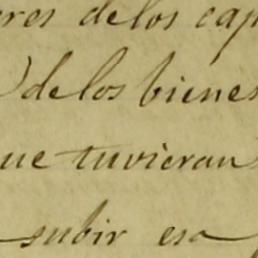 res de los cap
) de los bienes
ue tuvieran
subir esa